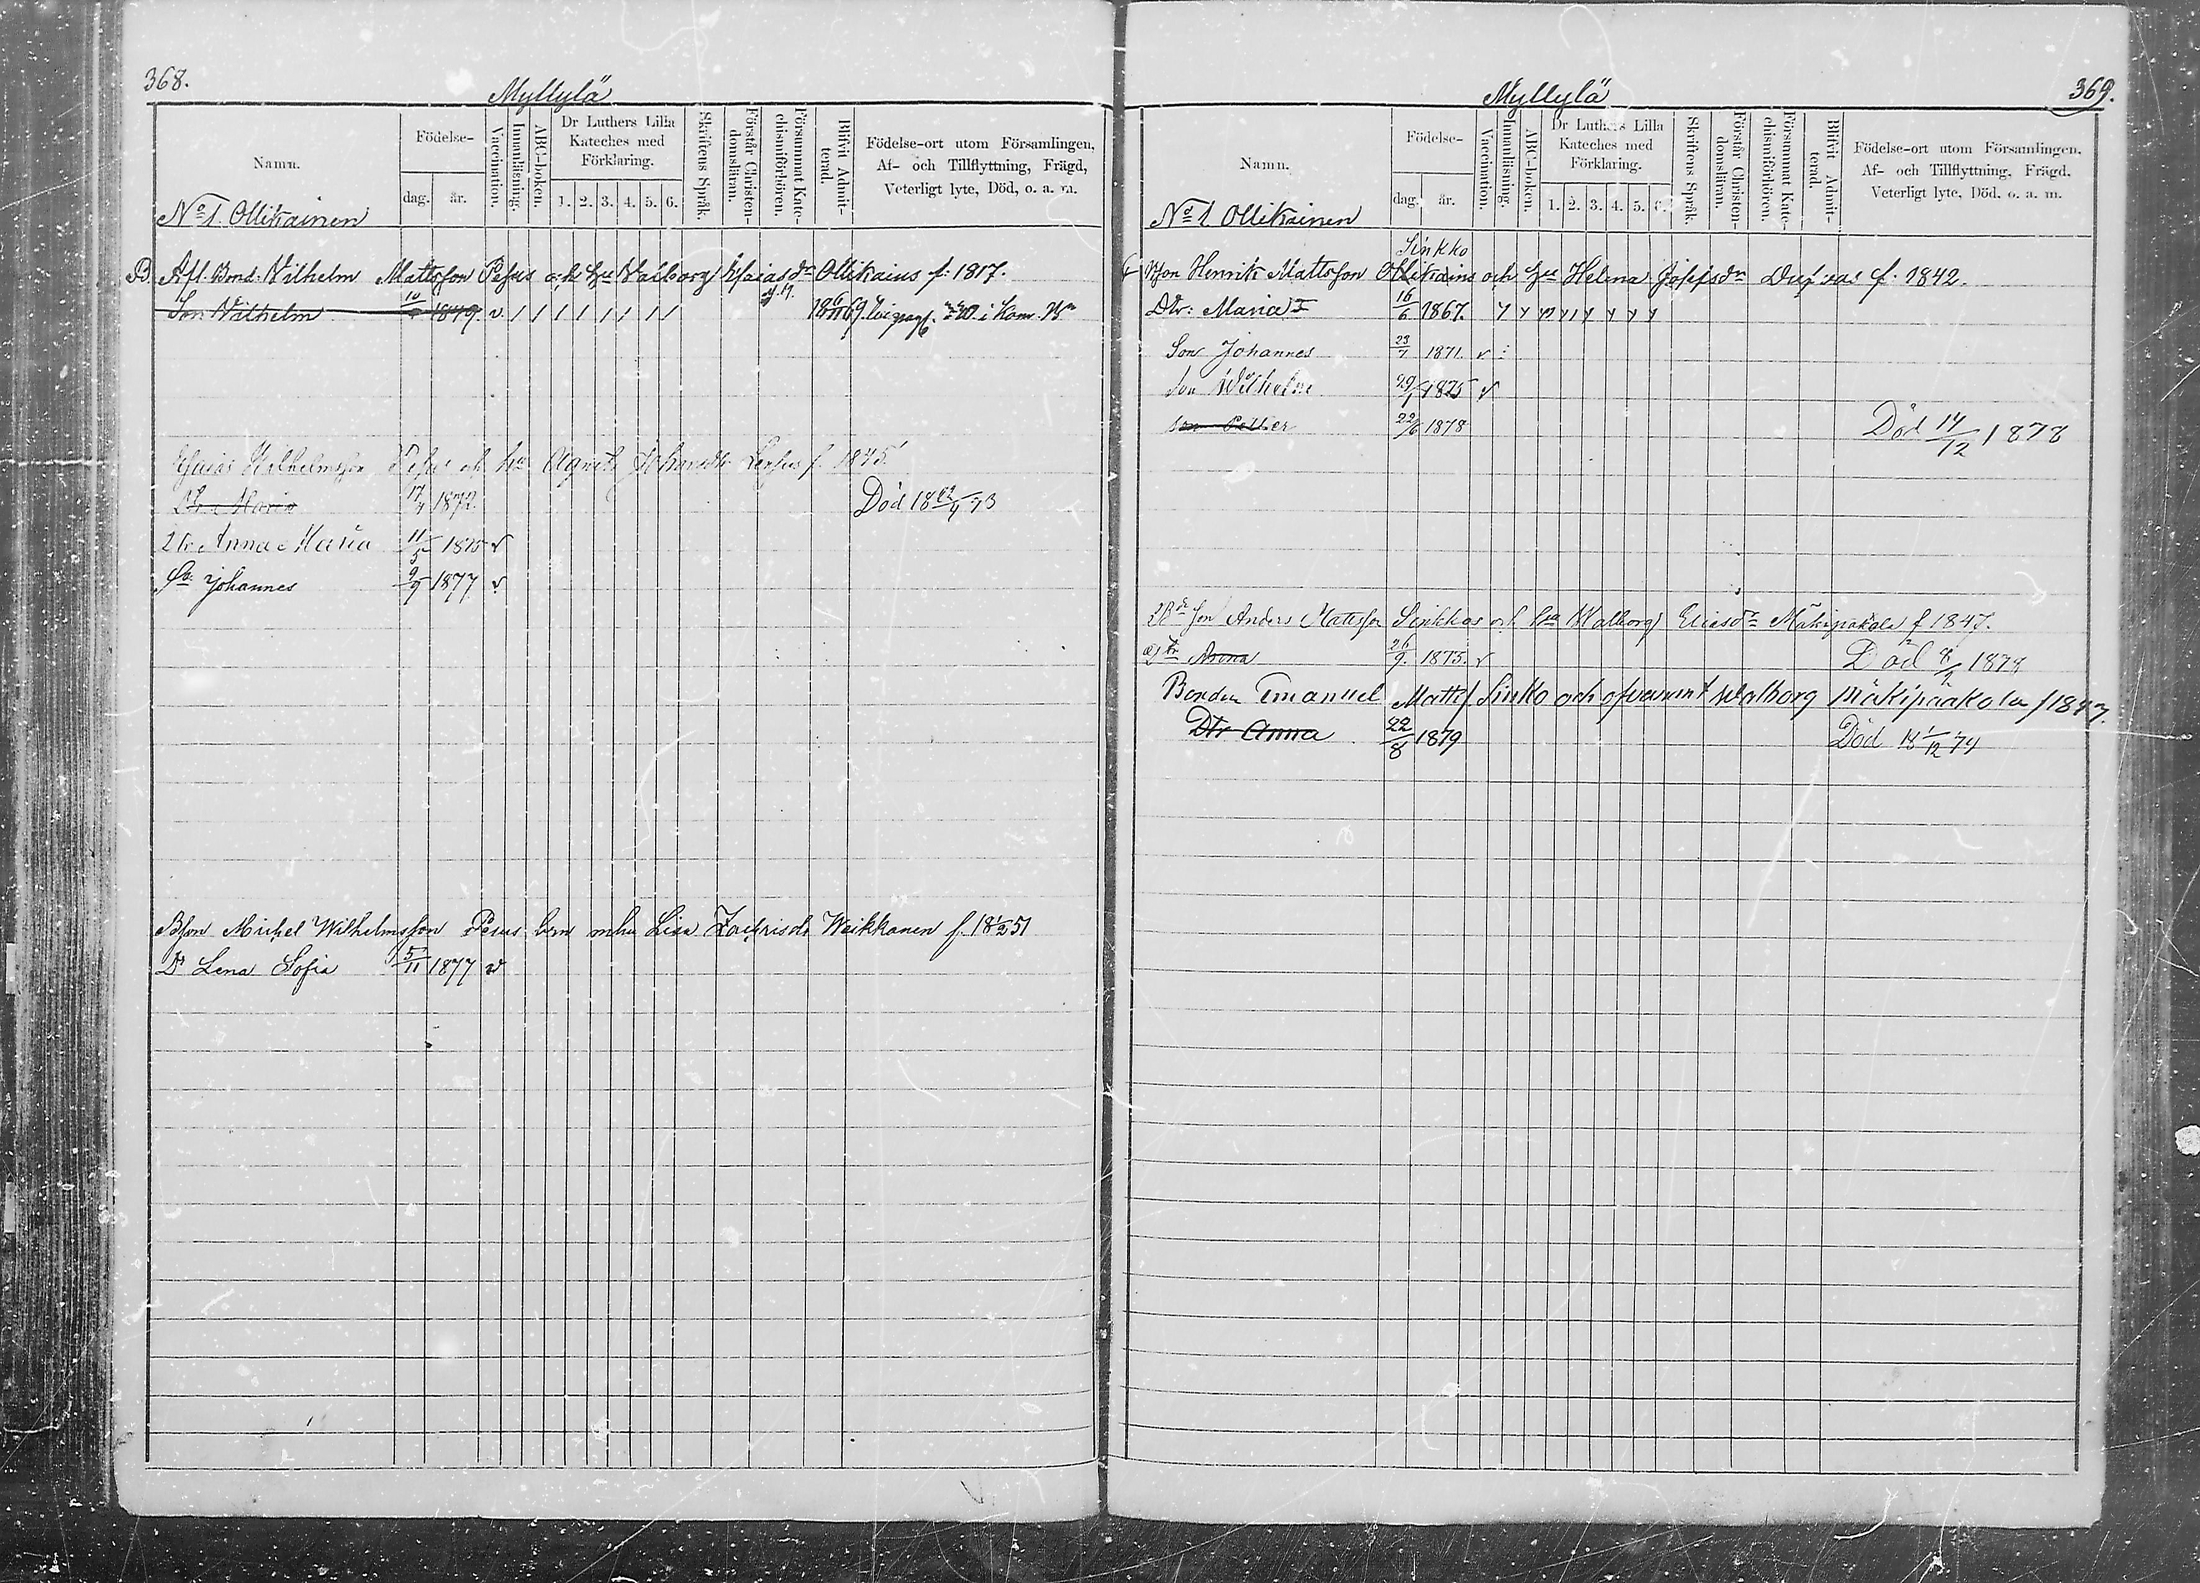 368.
Myllylä
Namn.
Födelse-
dag.
år.
Vaccination.
Innanläsning.
ABC-boken.
Dr Luthers Lilla
Kateches med
Förklaring.
1. 2. 3. 4. 5. 6.
Skriftens Språk.
Förstår Christen-
domsläran.
Försummat Kate-
chismiförhören.
Blifvit Admit-
terad.
Födelse-ort utom Församlingen,
Af- och Tillflyttning, Frägd,
Veterligt lyte, Död, o. a. m.
No 1. Ollikainen
B Afl. Bond. Vilhelm Mattsson Pesus och hu Valborg Esaiasdr Ollikains f. 1817.
Son Vilhelm 10 1849. v.
Esaias Wilhelmsson Pesus och hu Agneta f. 1845
Dtr Maria 17/4 1872. Död 18 /4 73
Dtr Anna Maria 11/5 1875 v
So: Johannes 9/9 1877 v
Bson Michel Wilhelmsson Pesus barn m hu Lisa Zachrisdr Weikkanen f. 18 1/2 51
Dr Lena Sofia 5/11 1877 v
369.
Myllylä
Namn.
Födelse-
dag.
år.
Vaccination.
Innanläsning.
ABC-boken.
Dr Luthers Lilla
Kateches med
Förklaring.
1. 2. 3. 4. 5. 6.
Skriftens Språk.
Förstår Christen-
domsläran.
Försummat Kate-
chismiförhören.
Blifvit Admit-
terad.
Födelse-ort utom Församlingen,
Af- och Tillflyttning, Frägd,
Veterligt lyte, Död, o. a. m.
No 1 Ollikainen
Sinkko
Bson Henrik Mattsson Ollikains och hu Helena Josefsdr f. 1842.
Dtr: Maria 16/6 1867.
Son Johannes 23/7 1871. v
Son Wilhelm 29/1 1875 v
Son Petter 22/6 1878 Död 14/12 1878
Son Anders Matsson Sinkkos och hu Walborg Eliasdr Mäkipäkola f 1847.
Dtr Anna 26/9. 1875. v Död 8/2 1878
Bonden Emanuel Matts. Sinko och ofvannmt Walborg Mäkipääkola f 1847.
Dtr Anna 22/8 1879 Död 18 1/12 79